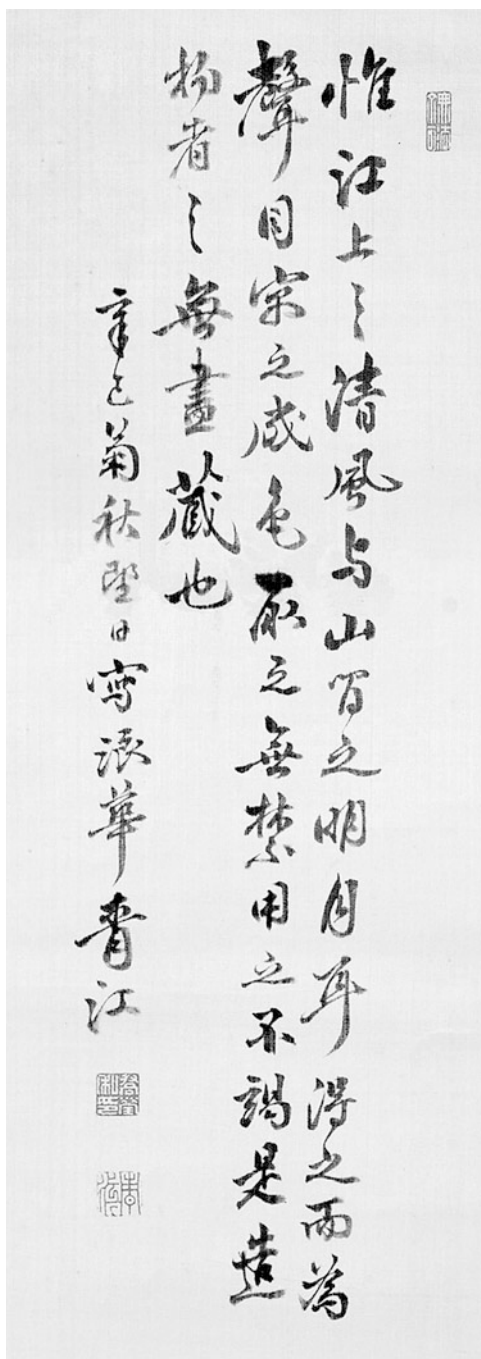 惟江上之清風与山間之明月耳得之而為
聲目寓之成色取之無禁用之不竭是造
物者之無盡藏也
辛巳菊秋望日寫浪華青江